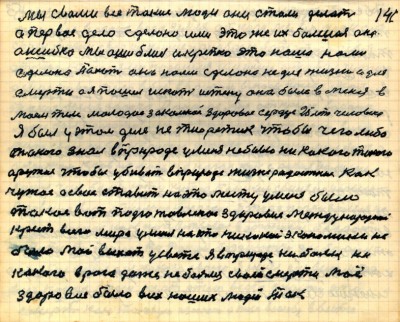 мы с вами все такие люди они стали делать 145
а первое дело сделано или это же их большая
ошибка мы ошиблись крепко это наша нами
сделано она нами сделана не для жизни а для
смерти а я пошел искать истину она была в меня в
моем теле молодое закалкой здоровое сердце человека
Я был у этом деле не теоретик чтобы чего либо
такого знал в природе у меня не было никакого такого
оружия чтобы убивать в природе жизнерадостная как
чужое ставить на это место у меня было
такое вот подготовленое здоровие международной
крест всего мира у меня на это никакой экономики не
было мой выход у света Я в природе не боялся ни
какого врага даже не боялись своей смерти моё
здоровие было всих наших людей так